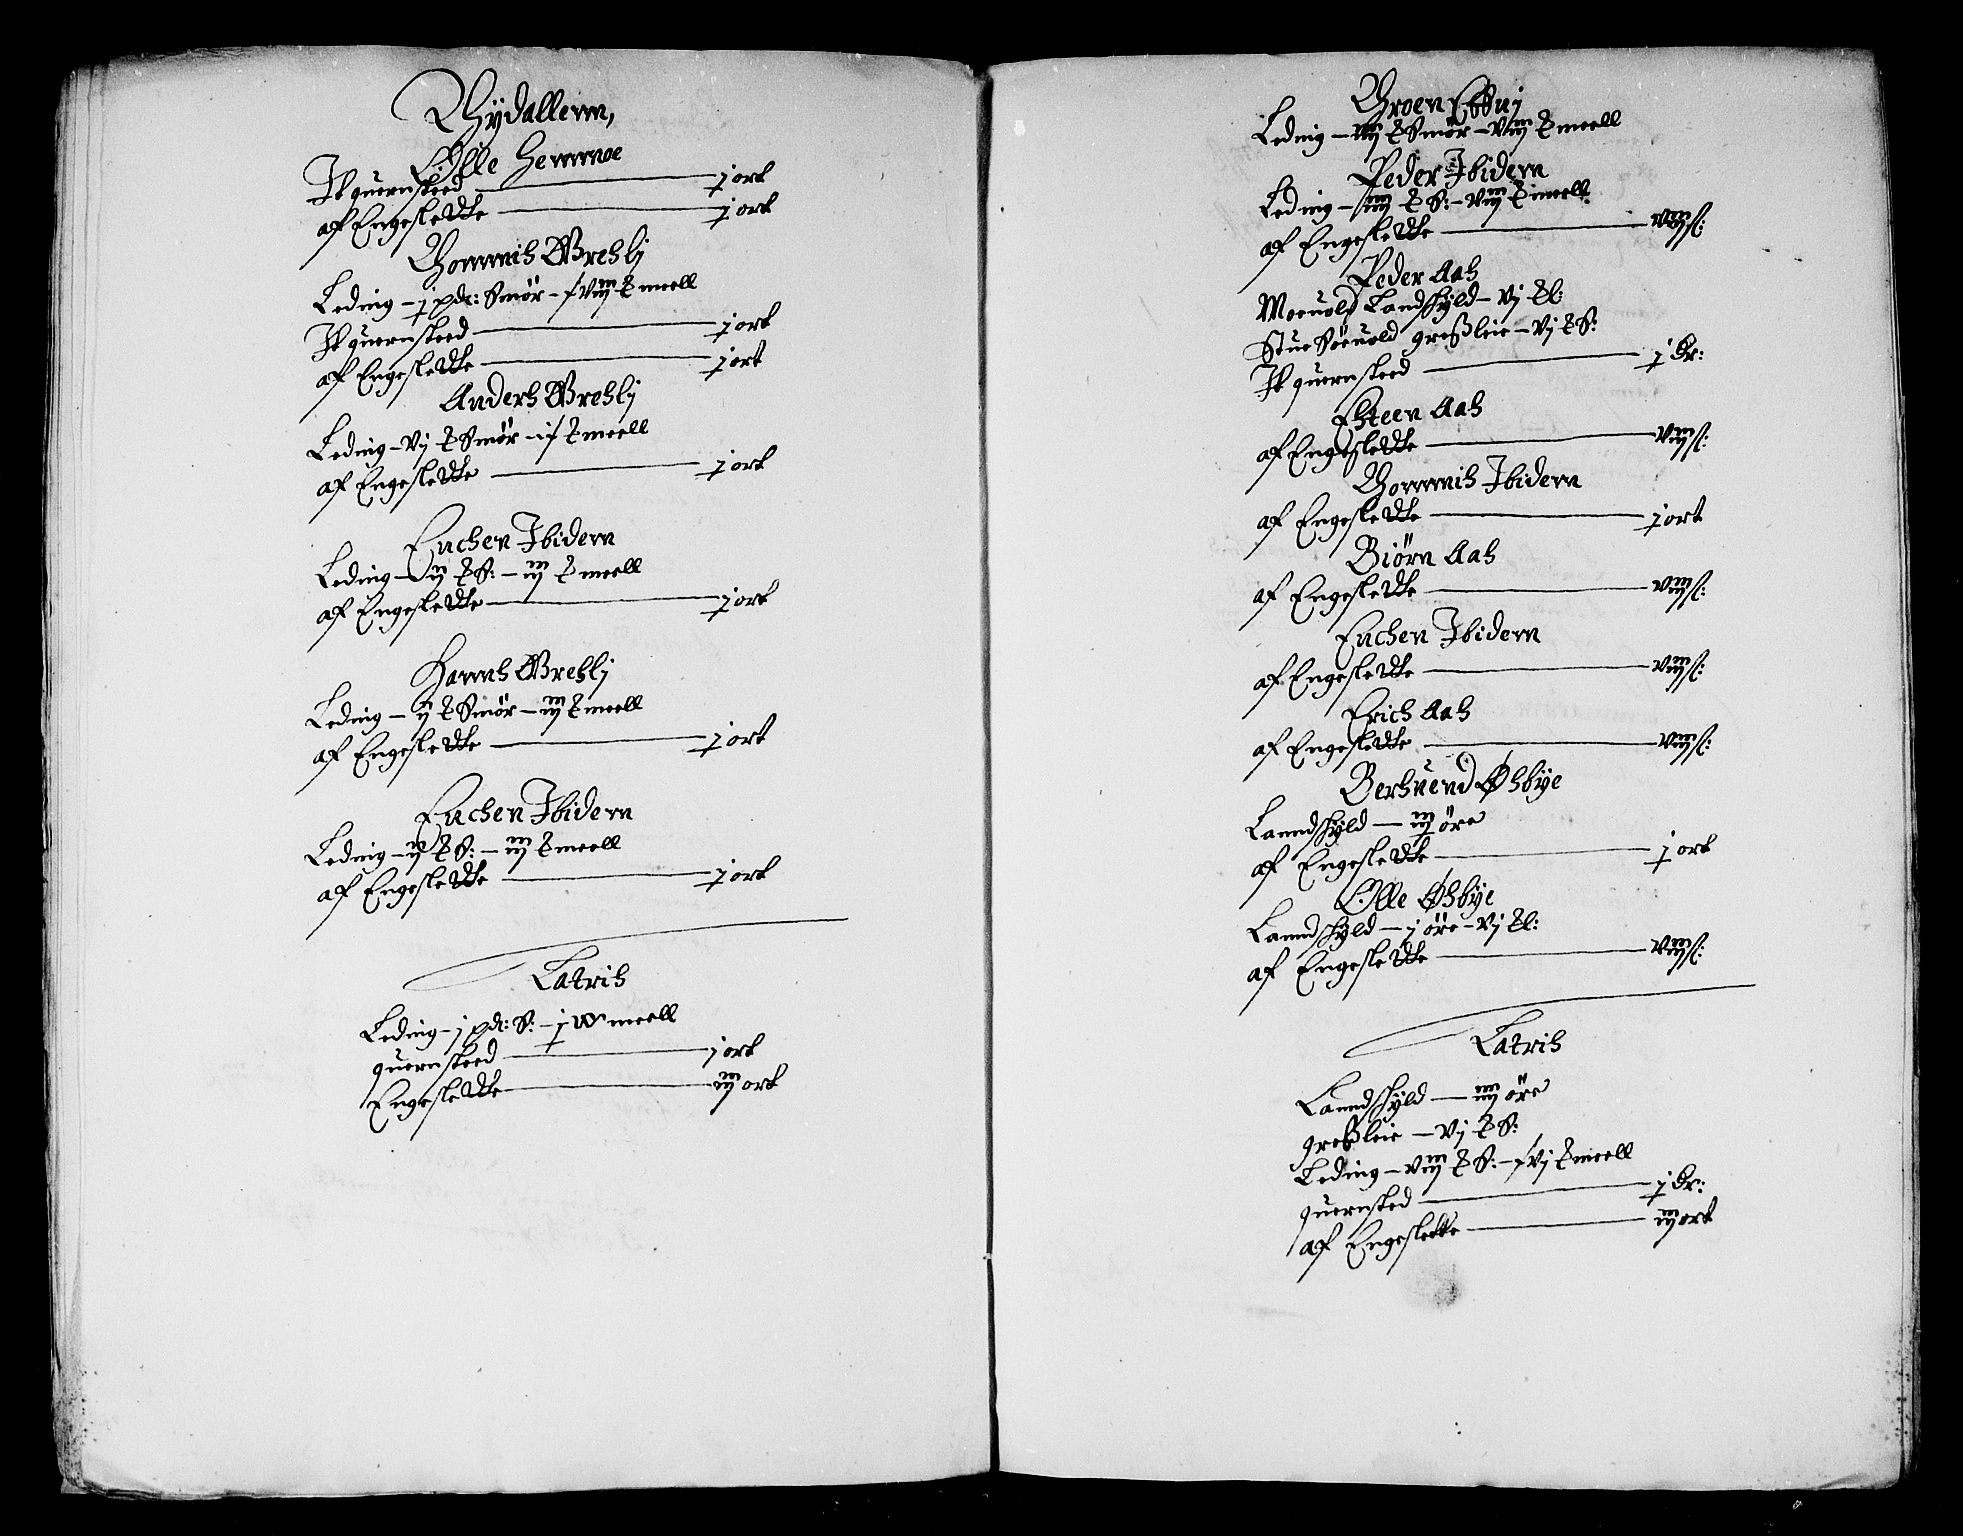 Thydallenn,
Olle Hemmoe
It quernsteed — j ort
af Engeslette — j ort
Thommis Gresli
Leding — j pd: Smør — meell
It quernsteed — j ort
af Engeslette — j ort
Anders Gresli
Leding — vj ℔ Smør — meell
af Engeslette — j ort
Euchen Ibidem
Leding — iij ℔ S: — iiij ℔ meell
af Engeslette — j ort
Hanns Gresli
Leding — ij ℔ Smør — iiij ℔ meell
af Engeslette — j ort
Euchen Ibidem
Leding — ij ℔ S: — iiij ℔ meell
af Engeslette — j ort
Latris
Leding — j pd: S: — j W meell
quernsteed — j ort
Engeslette — ort
Groen
Leding — ℔ Smør — viij ℔ meell
Peder Ibidem
Leding — iiij ℔ S: — viij ℔ meell
af Engeslette — viij s:
Peder Aas
Moeuold Landskyld — vj El:
Stue Søeuold gresleie — vj ℔ S:
It quernsteed — j Dr:
Esteen Aas
af Engeslette — viij s:
Thommis Ibidem
af Engeslette — j ort
Biørn Aas
af Engeslette — viij s:
Euchen Ibidem
af Engeslette — viij s:
Erich Aas
af Engeslette — viij s:
Berhuend Øsbye
Lanndskyld — iij øre
af Engeslette — j ort
Olle Øsbye
Lanndskyld — j øre — vj El:
af Engeslette — viij s:
Latris
Lanndskyld — iiij øre
gresleie — vj ℔ S:
Leding — viij ℔ S: — ℔ meell
quernsted — j Dr:
af Engeslette — ort